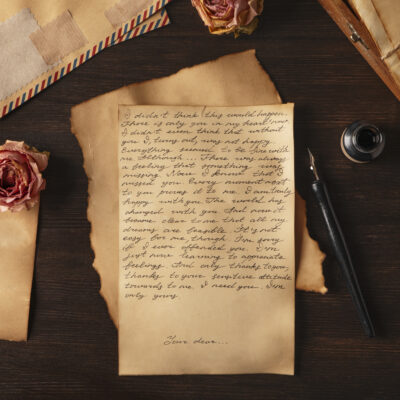 I didn't think this would happen.
There is only you in my heart now.
I didn't even think that without
you I, turns out, was not happy.
Everything seemed to be fine with
me, although... There was always
a feeling that something was
missing. Now I know that I
missed you. Every moment next
to you proves it to me. I am truly
happy with you. The world has
changed with you. And now it
became clear to me that all my
dreams are feasible. It's not
easy for me though. I'm sorry
if I ever offended you. I'm
just now learning to appreciate
feelings. And only thanks to you,
thanks to your sensitive attitude
towards to me. I need you. I'm
only yours
Your dear...